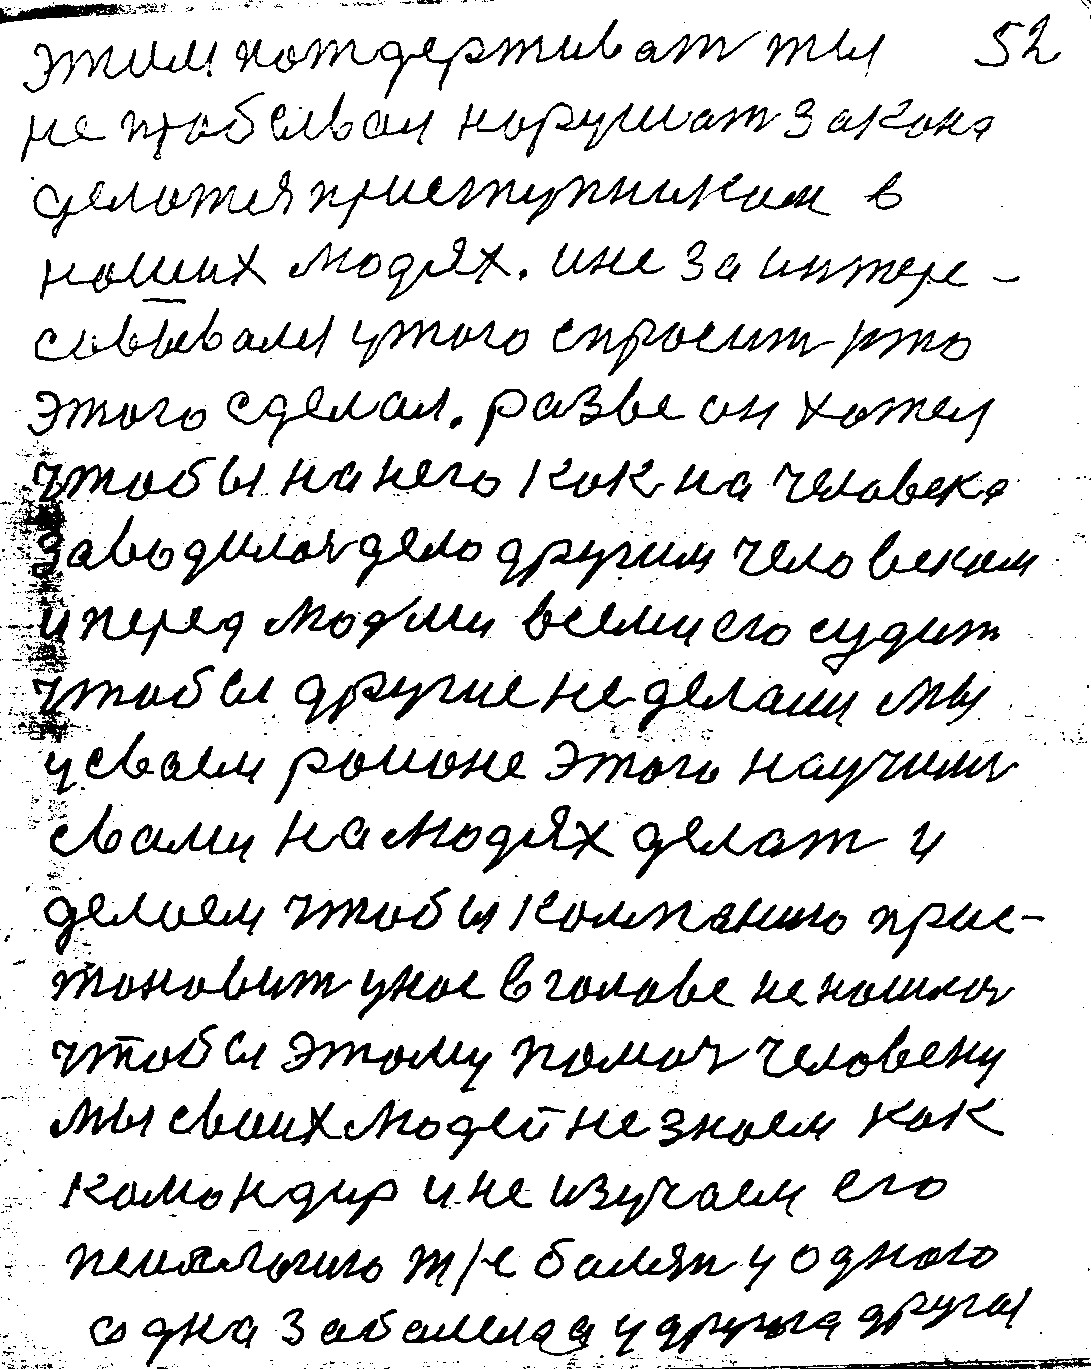 этим потдерживат ты 52
не пробывал нарушат закона
делатся приступником в
наших людях. ине заинтере-
совывался утого спросит кто
этого сделал. разве он хотел
чтобы на него как на человека
заводилоя дело другим человеком
и перед людми всеми его судит
чтобы другие не делали мы
усваем районе этого научилис
свами на людях делат и
делаем чтобы компаниюприс-
тоновит унас в голове не нашлоя
чтобы этому помоч человеку
мы сваих людей не знаем как
командир и не изучаем его
психологию т/е балян у одного
одна забалела а удруга другая